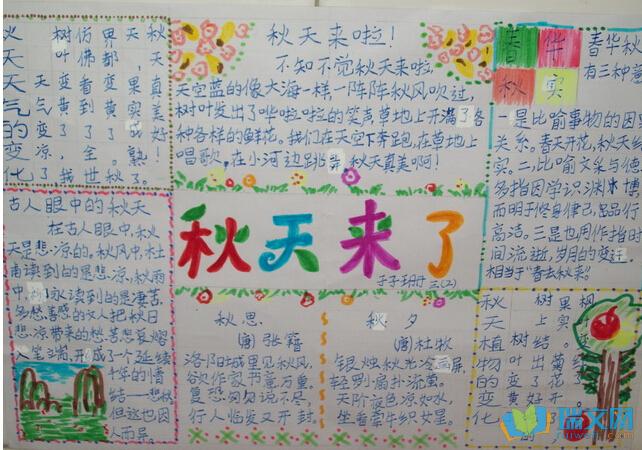 天天气的变化
天气变凉了
树叶变黄了，我
仿佛看到了全世
界都变黄了。秋
天，果实成熟了。
秋天真美好！
秋天来啦！
不知不觉秋天来啦，
天空蓝的像大海一样，一阵阵秋风吹过，
树叶发出了哗啦啦的笑声草地上开满了各
种各样的鲜花。我们在天空下奔跑，在草地上
唱歌，在小河边跳舞，秋天真美啊！
春华
秋实
春华秋
有三种
一是比喻事物的因果
关系。春天开花，秋天结
实。二、比喻文采与德
多指因学识渊博
而明于修身律己，品行
高洁。三是也用作指时
间流逝，岁月的变迁
相当于"春去秋来"。
古人眼中的秋天
在古人眼中，秋
天是悲凉的。秋风中，杜
甫读到的是悲凉，秋雨
中，永读到的是凄苦，
多愁善感的文人把秋日
悲凉带来的愁苦
成了一个延续
千年的情
结——悲秋
但这也因
人而异。
秋天来了
三(2)
秋思
(唐)张籍
洛阳城里见秋风，
欲作家书意万重。
复恐匆匆说不尽，
行人临发又开封。
秋夕
(唐)杜牧
银烛秋光冷画屏，
轻罗扇扑流萤。
天阶夜色凉如水，
坐看牵牛织女星。
秋天植物的变化
树叶变黄
树上结出了好
果实
菊花开
瑞文网